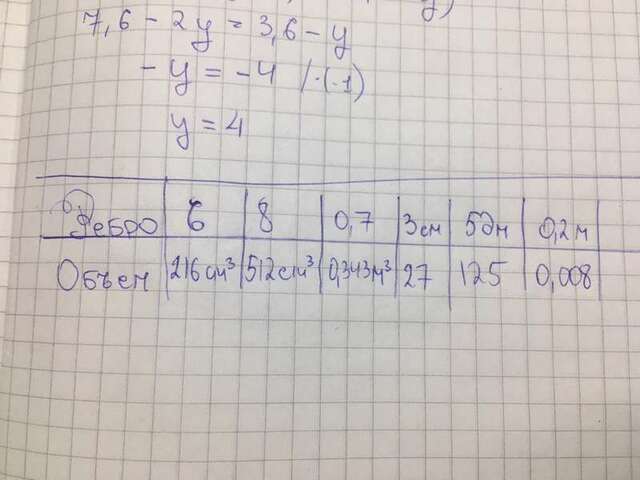 7,6 - 2y = 3,6 - y
- y = - 4 / · (-1)
y = 4
Ребро 6 8 0,7 3 см 5 дм 0,2 м
Объем 216 см³ 512 см³ 0,343 м³ 27 125 0,008